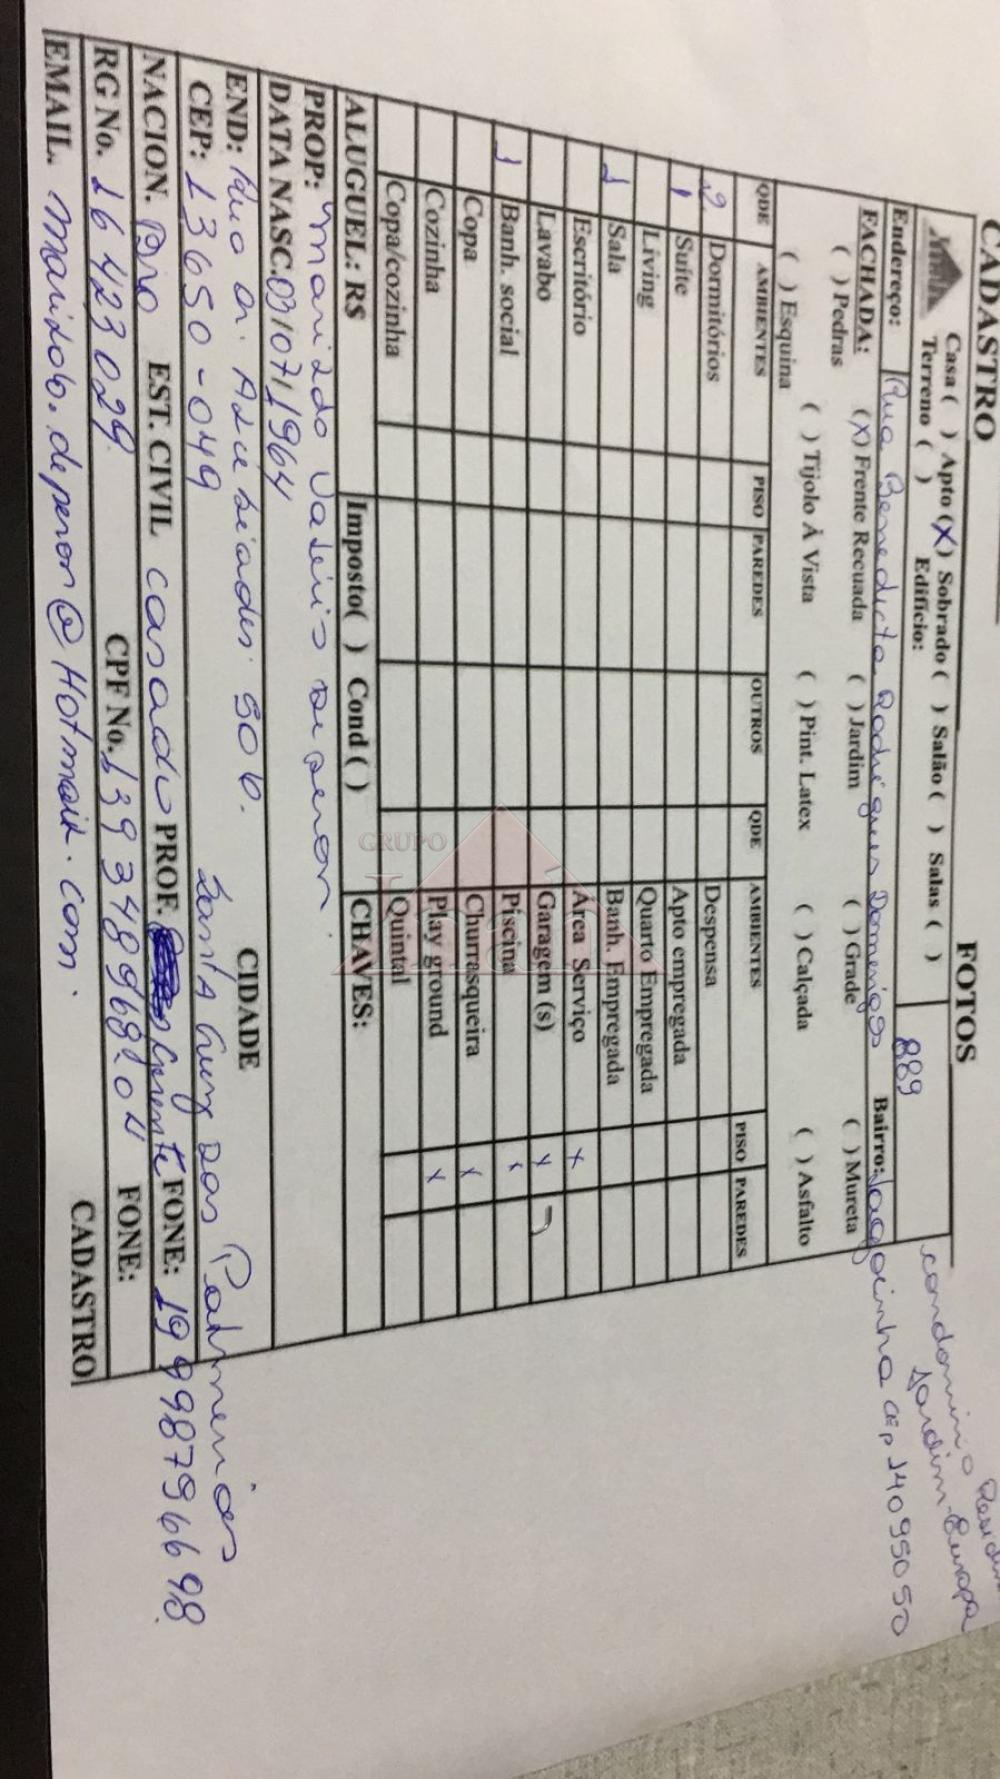 CADASTRO
FOTOS
Casa ( ) Apto (X) Sobrado ( ) Salão ( ) Salas ( )
Terreno ( ) Edifício:
condominio Resid
Jardim Europa
Endereço: Rua Benedicta Rodrigues Domingos 889 Bairro: Lagoinha cep 14095050
FACHADA: (X) Frente Recuada ( ) Jardim ( ) Grade ( ) Mureta
( ) Pedras ( ) Tijolo À Vista ( ) Pint. Latex ( ) Calçada ( ) Asfalto
( ) Esquina
QDE AMBIENTES PISO PAREDES OUTROS QDE AMBIENTES PISO PAREDES
2 Dormitórios Despensa
1 Suíte Apto empregada
Living Quarto Empregada
1 Sala Banh. Empregada
Escritório Área Serviço x
Lavabo Garagem (s) x
1 Banh. social Piscina x
Copa Churrasqueira x
Cozinha Play ground x
Copa/cozinha Quintal
ALUGUEL: R$ Imposto( ) Cond ( ) CHAVES:
PROP: Marildo Valerio Deperon
DATA NASC. 03/07/1964
END: Rua 506. CIDADE Santa Cruz das Palmeiras
CEP: 13650-049
NACION. Bro EST. CIVIL casado PROF. Gerente FONE: 19 998796698
RG No. 16423029 CPF No. 139348968-04 FONE:
EMAIL. marildo.deperon@Hotmail.com.
CADASTRO
GRUPO